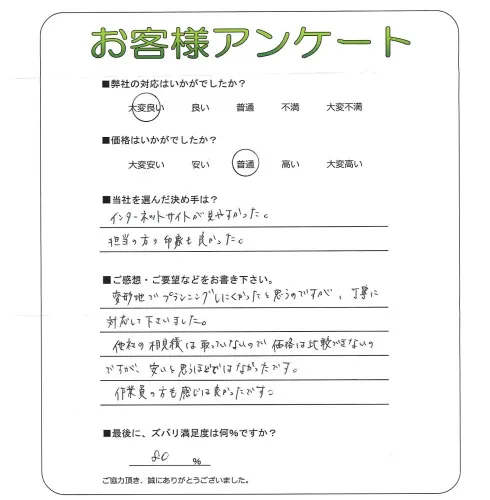 お客様アンケート
■弊社の対応はいかがでしたか？
大変良い 良い 普通 不満 大変不満
■価格はいかがでしたか？
大変安い 安い 普通 高い 大変高い
■当社を選んだ決め手は？
インターネットサイトが見やすかった。
担当の方の印象も良かった。
■ご感想・ご要望などをお書き下さい。
変形地でプランニングしにくかったと思うのですが、丁寧に
対応して下さいました。
他社の相見積は取っていないので価格は比較できないの
ですが、安いと思うほどではなかったです。
作業員の方も感じは良かったです。
■最後に、ズバリ満足度は何％ですか？
80 %
ご協力頂き、誠にありがとうございました。